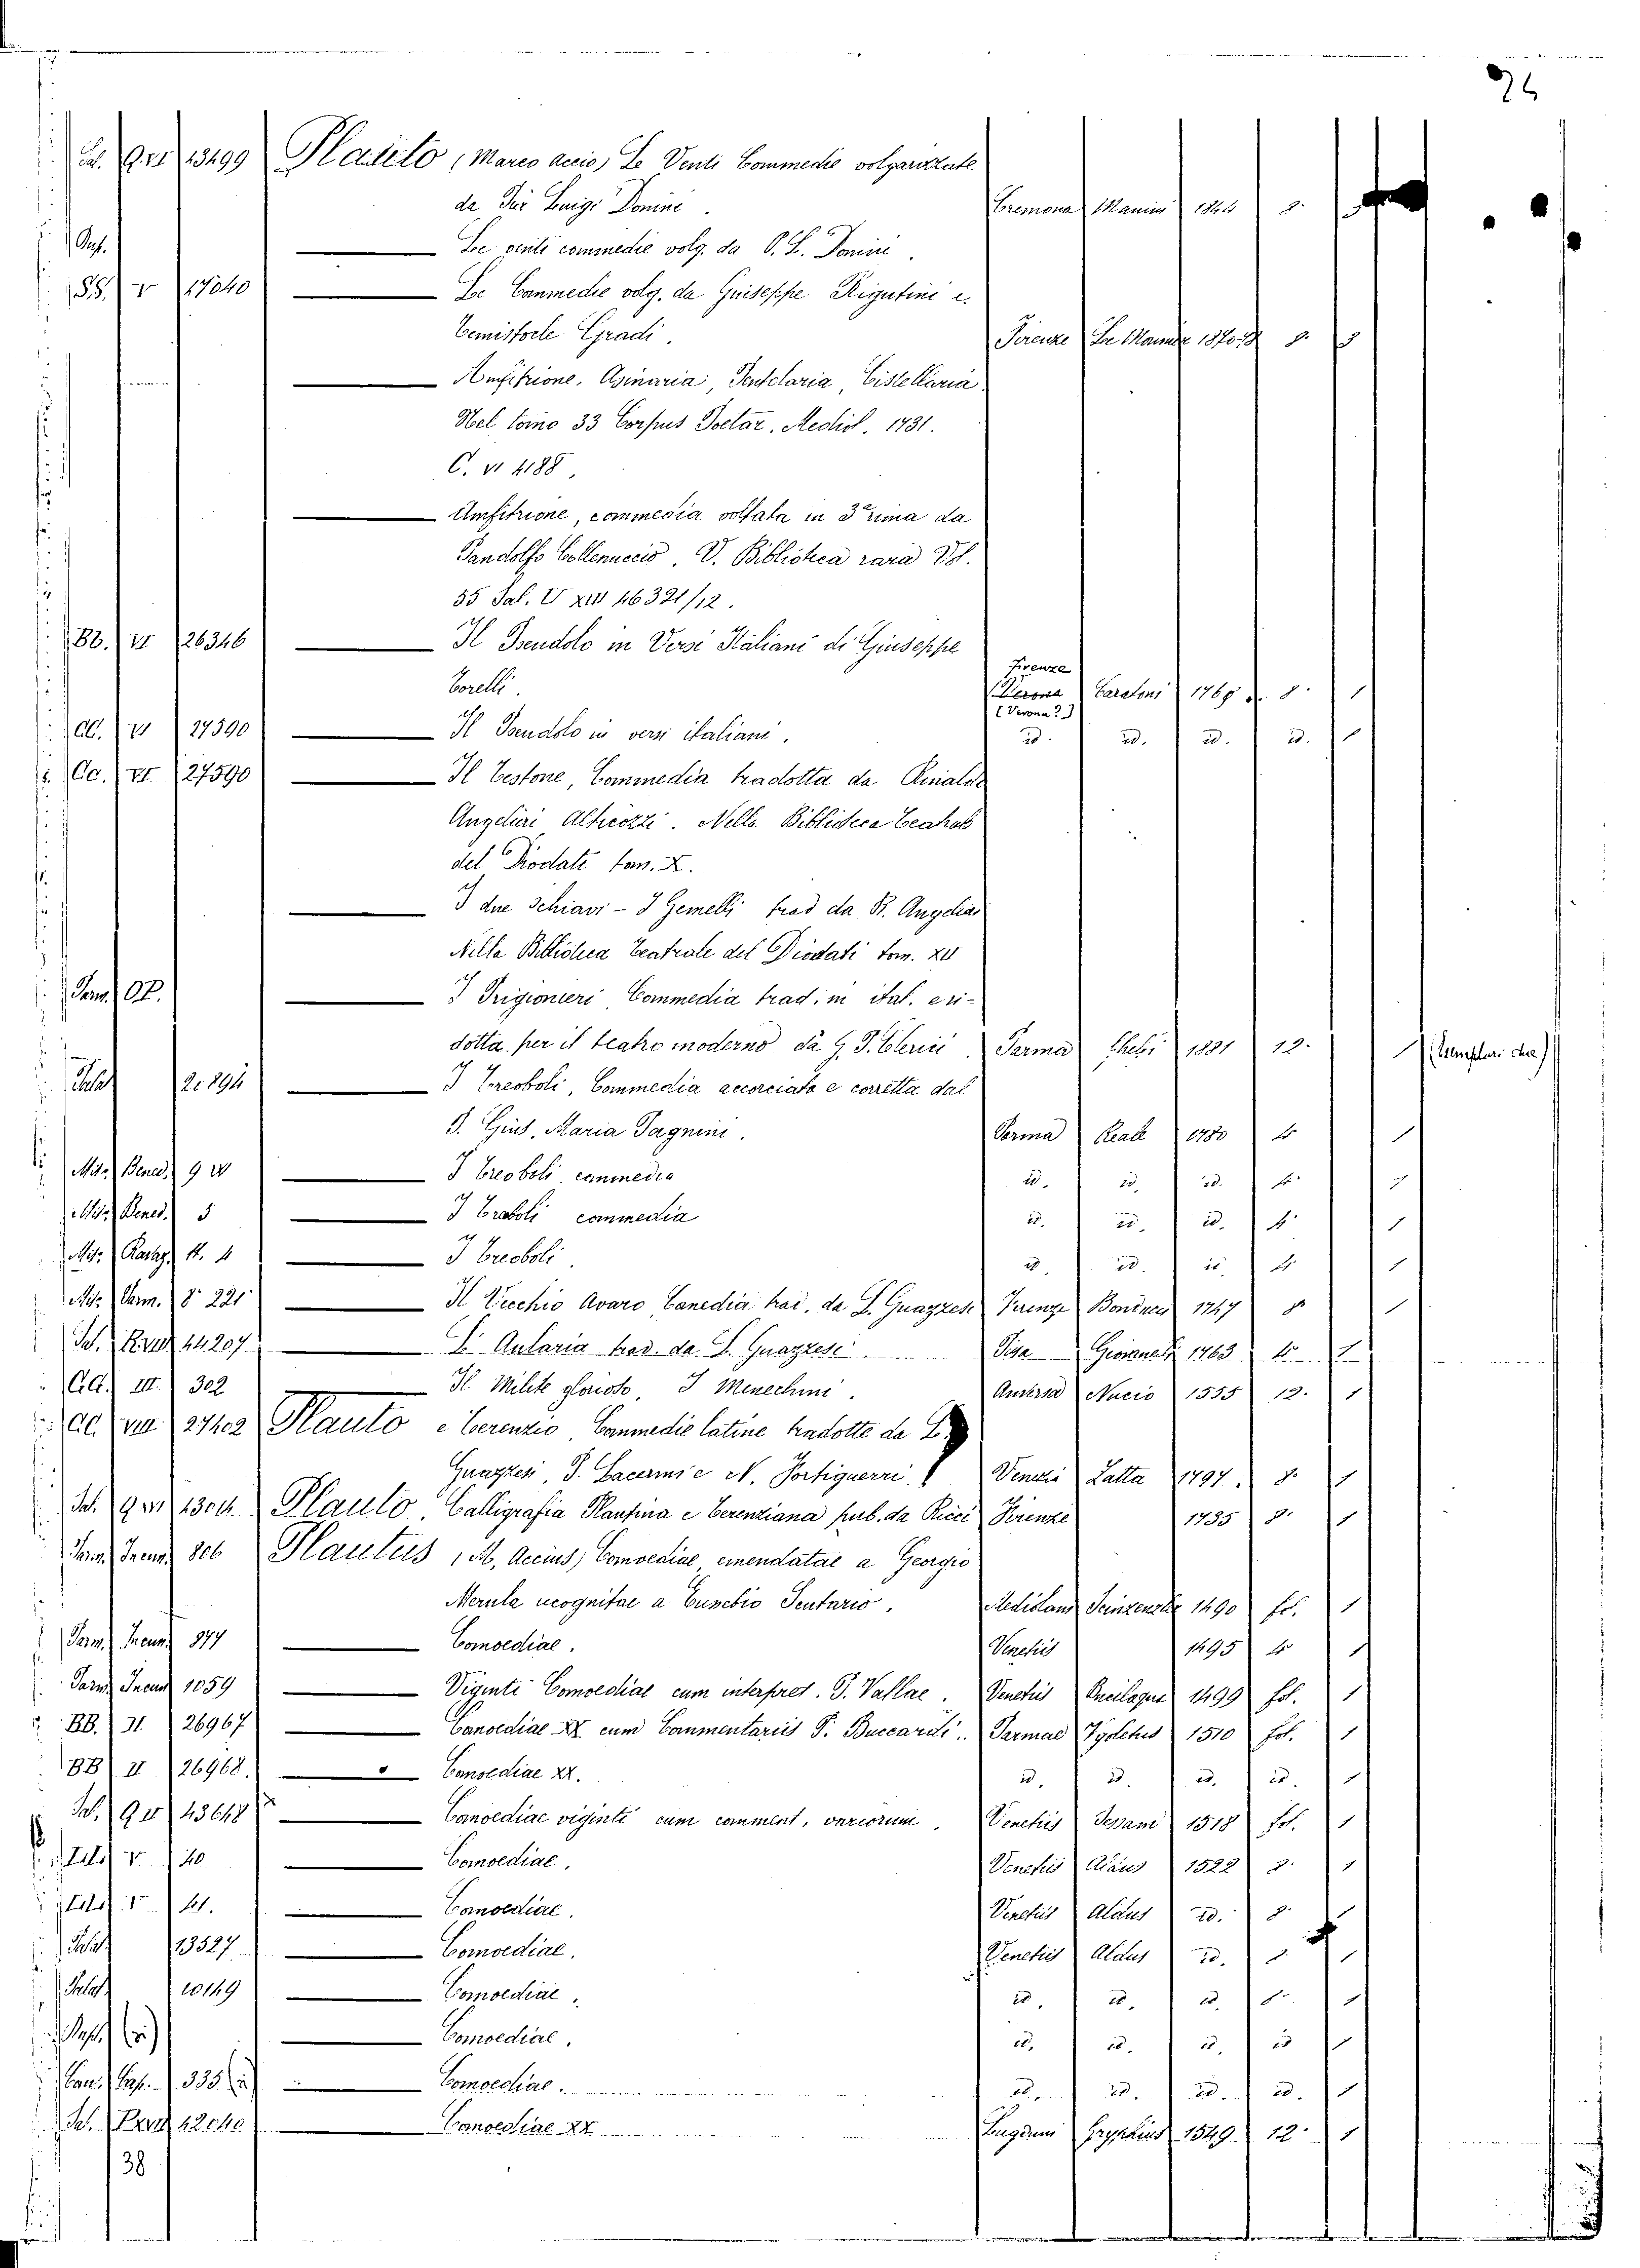 Sal. Q VI 43499 Plauto (Marco Accio) Le Venti Commedie volgarizzate
da Pier Luigi Donini. Cremona Manini 1844 8.
Le venti commedie volg. da P. L. Donini.
SS. V 17040 Le Commedie volg. da Giuseppe Rigutini e
Temistocle Gradi. Firenze Le Monnier 1870-78 8. 3
Anfitrione, Asinaria, Aulularia, Cistellaria
Nel tomo 33 Corpus Poetar. Mediol. 1731.
C. VI 4188
Amfitrione, commedia voltata in 3ª rima da
Pandolfo Collenuccio. V. Biblioteca rara Vol.
55 Sal. V XIII 46321/12.
BB. VI 26346 Il Pseudolo in Versi Italiani di Giuseppe
Firenze
Torelli. Verona Caratoni 1765 8. 1
(Verona?)
CC. VI 27590 Il Pseudolo in versi italiani. id. id. id. id. 1
CC. VI 27590 Il Testone, Commedia tradotta da Rinaldo
Angelieri Alticozzi. Nella Biblioteca Teatrale
del Diodati tom. X.
I due Schiavi - I Gemelli trad da R. Angelieri
Nella Biblioteca Teatrale del Diodati tom. XII
I Prigionieri Commedia trad. in ital. e ri-
dotta per il teatro moderno da G. P. Clerici. Parma 1881 12. 1 (Esemplari due)
Palat 2894 I Treoboli, Commedia accorciata e corretta dal
P. Gius. Maria Pagnini. Parma Reale 1780 4. 1
Misc. Bened. 9 I Treoboli commedia id. id. id. 4. 1
Misc. Bened. 5 I Treoboli commedia id. id. id. 4. 1
Misc. 4. 4 I Treoboli. id. id. id. 4. 1
Misc. Parm. 8º 221 Il Vecchio Avaro Comedia trad. da L. Guazzesi Firenze Bonducci 1747 8. 1
Sal. 44207 L'Aularia trad. da L. Guazzesi Pisa Giovanelli 1763 4. 1
AA. III. 302 Il Milite glorioso, I Menechmi. Anversa Nucio 1555 12. 1
CC. VIII 27402 Plauto e Terenzio, Commedie latine tradotte da L.
Guazzesi, P. Lacermi e N. Fortiguerri. Venezia Zatta 1797. 8. 1
Sal. Q VI Plauto Calligrafia Plautina e Terenziana pub. da Ricci Firenze 1735 8. 1
Parm. Incun. 806 Plautus (M. Accius) Comoediae emendatae a Georgio
Merula recognitae a Eusebio Scutario. Mediolani Scinzenzeler 1490 fol. 1
Parm. Incun. 877 Comoediae. Venetiis 1495 4. 1
Parm. Incun. 1059 Viginti Comoediae cum interpret. P. Vallae. Venetiis Bevilaqua 1499 fol. 1
BB. II. 26967 Comoediae XX cum Commentariis P. Buccardi. Parmae Ugoletus 1510 fol. 1
BB. II 26968 Comoediae XX. id. id. id. id. 1
Sal. Q 43648 Comoediae viginti cum comment. variorum. Venetiis Sessam 1518 fol. 1
Ald. V. 40. Comoediae. Venetiis Aldus 1522 8. 1
Ald. V 41. Comoediae. Venetiis Aldus id. 8. 1
Palat 13527 Comoediae. Venetiis Aldus id. 1
Palat 10149 Comoediae. id. id. id. 8. 1
Comoediae. id. id. id. id. 1
335 Comoediae. id. id. id. id. 1
Sal. Comoediae XX Lugduni Gryphius 1549 12. 1
38